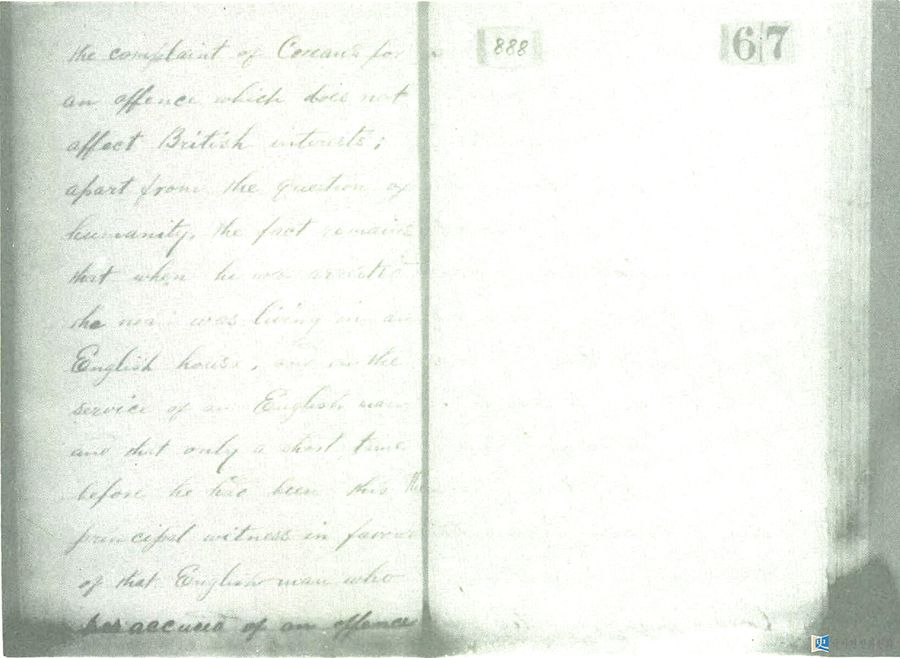 the complaint of Coreans for
an offence which does not
affect British interests;
apart from the question of
humanity, the fact remains
that when he was arrested
the man was living in an
English house, and in the
service of an English man
and that only a short time
before he had been this
principal witness in favour
of that English man who
accused of an offence
888
67